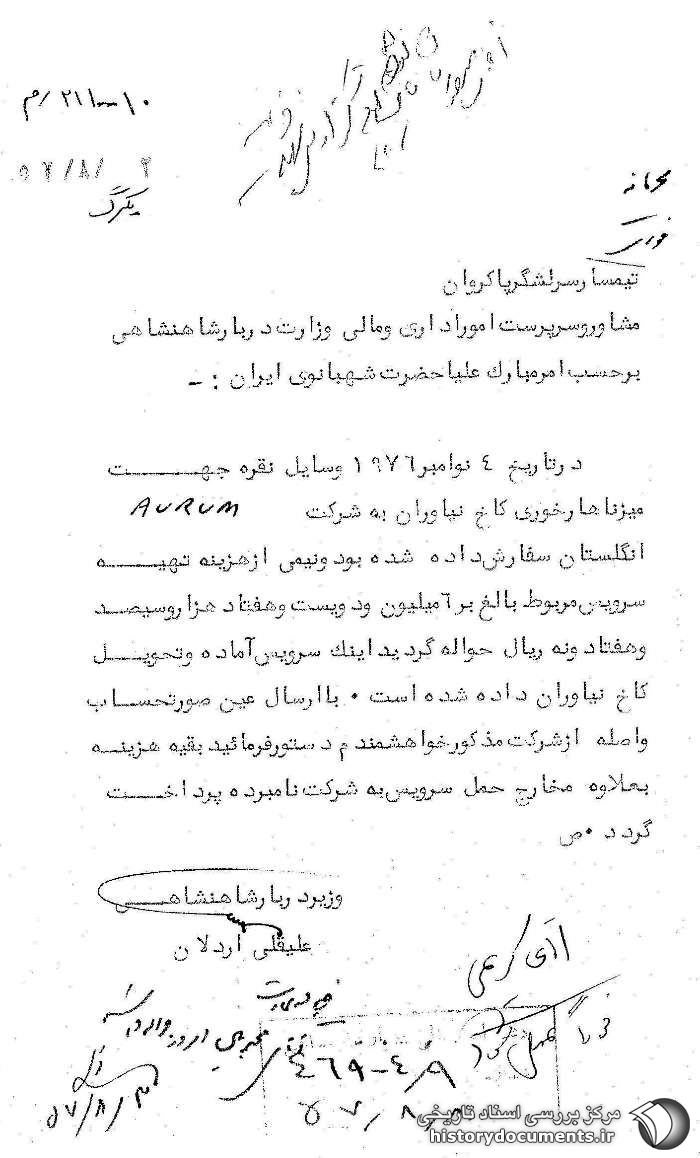 ۲۱۱۰۰۱۰/م
۲/۸/۵۷
یکبرگ
محرمانه
فوری
تیمسارسرلشگرپاکروان
مشاوروسرپرست اموراداری ومالی وزارت دربارشاهنشاهی
برحسب امرمبارك علیاحضرت شهبانوی ایران : ـ
درتاریخ ٤ نوامبر۱۹۷٦ وسایل نقره جهت
میزناهارخوری کاخ نیاوران به شرکت AURUM
انگلستان سفارش داده شده بود ونیمی ازهزینه تهیه
سرویس مربوط بالغ بر٦میلیون ودویست وهفتاد هزاروسیصد
وهفتادونه ریال حواله گردید اینك سرویس آماده وتحویل
کاخ نیاوران داده شده است ۰ باارسال عین صورتحساب
واصله ازشرکت مذکورخواهشمندم دستورفرمائید بقیه هزینه
بعلاوه مخارج حمل سرویس به شرکت نامبرده پرداخت
گردد ۰ص
وزیردربارشاهنشاهی
علیقلی اردلان
فوراً عمل شود
٤٦۹-٤/۹
۵۷/۸/۳
مرکز بررسی اسناد تاریخی
historydocuments.ir